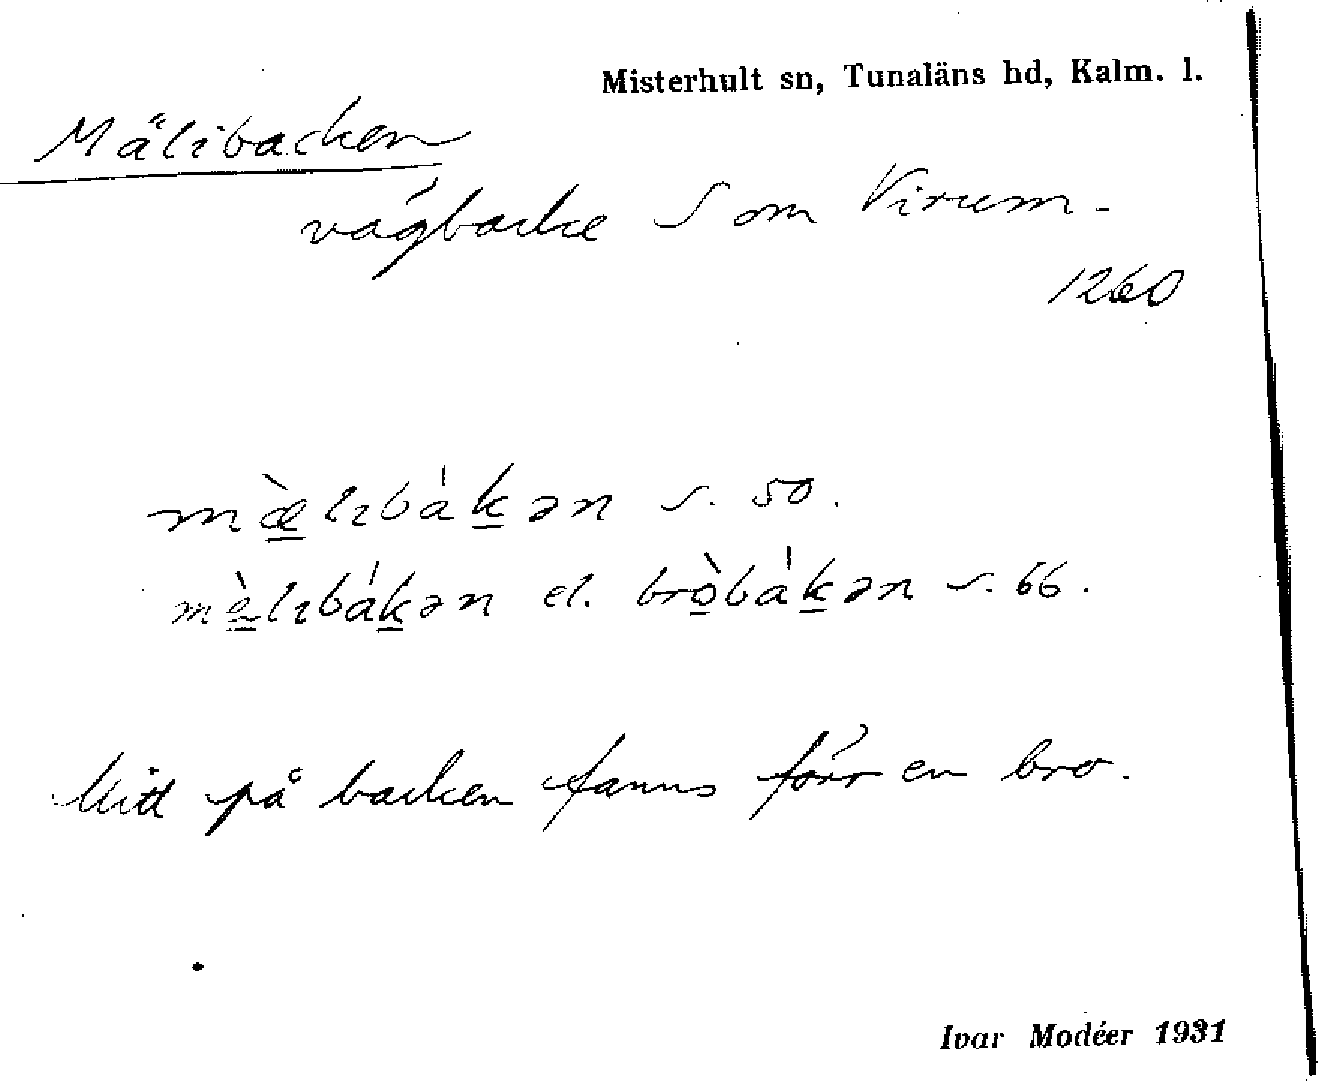 Misterhult sn, Tunaläns hd, Kalm. l.
Mälibacken
vägbacke S om Virum.
1260
mæ̀lıbàkən s. 50.
mèlıbàkən el. bròbàkən s. 66.
Mitt på backen fanns förr en bro.
Ivar Modéer 1931